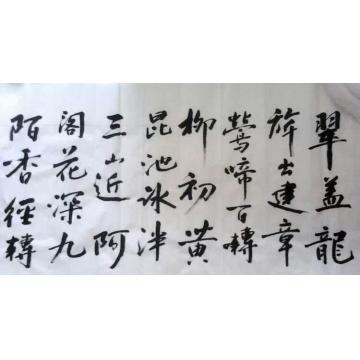 翠盖龍
旂出建章
鶯啼百囀
柳初黄
昆池冰泮
三山近阿
阁花深九
陌香徑轉